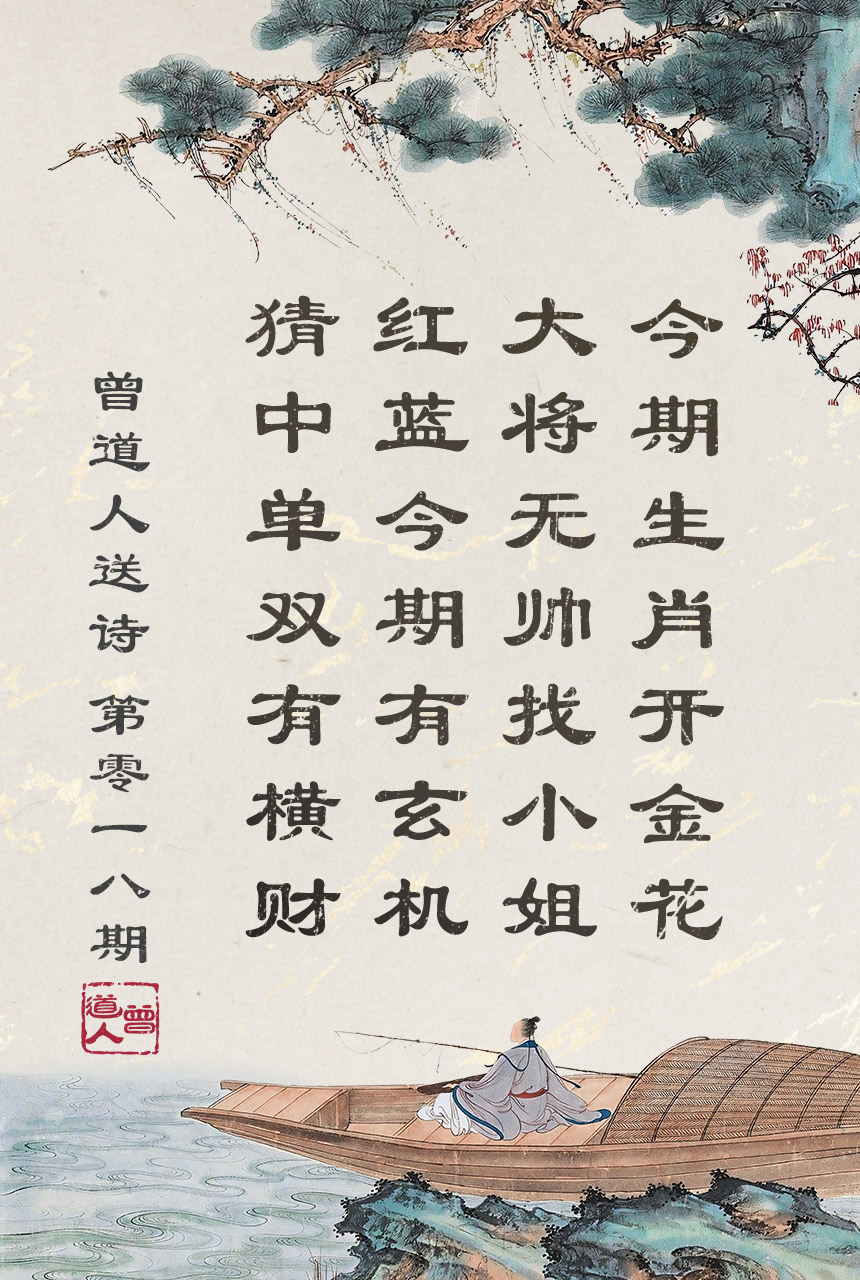 今期生肖开金花
大将无帅找小姐
红蓝今期有玄机
猜中单双有横财
曾道人送诗 第零一八期
曾道人